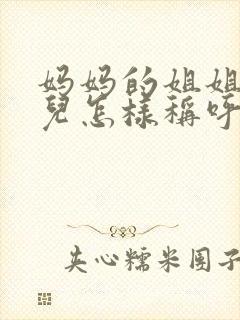 妈妈的姐姐
兒怎樣稱呼
夹心糯米团子